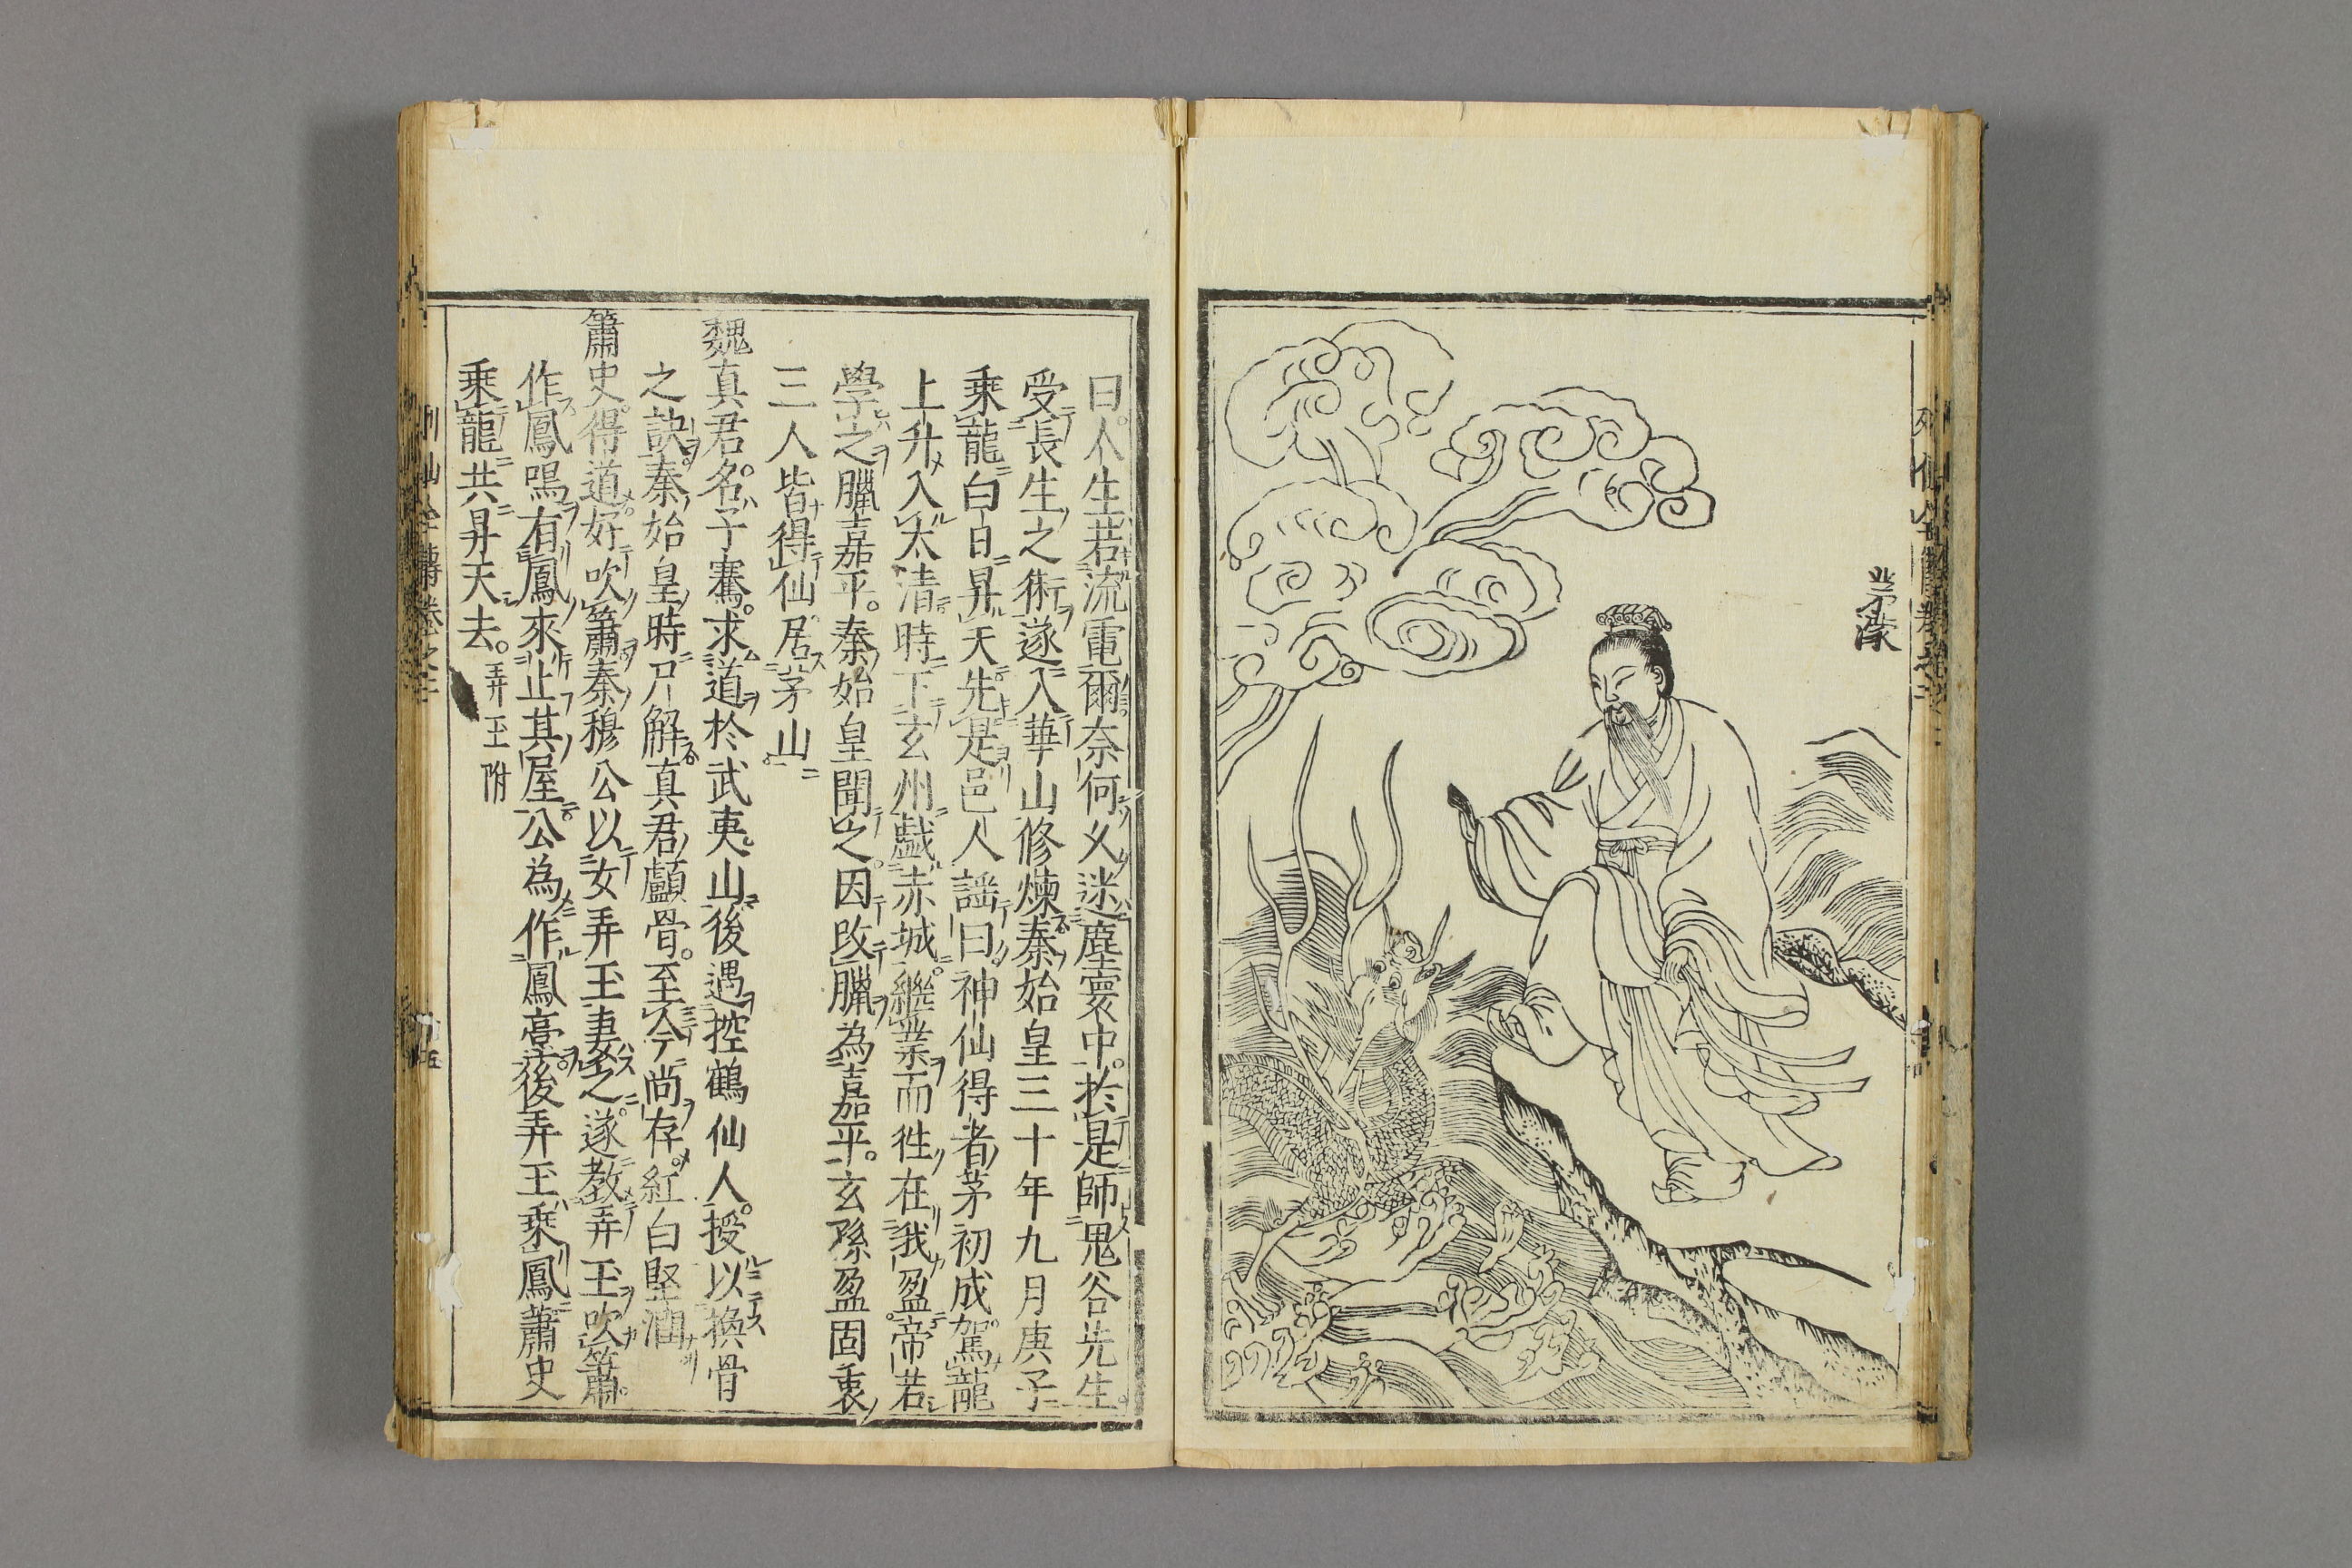 茅濛
曰。人生若流電爾奈何久迷塵寰中。於是師鬼谷先生。
受長生之術遂入華山修煉秦始皇三十年九月庚子
乘龍白日昇天先是邑人謡曰神仙得者茅初成。駕龍
上升入太清時下玄州戯赤城。繼業而徃在我盈。帝若
學之臘嘉平。秦始皇聞之。因改臘為嘉平。玄孫盈固衷
三人皆得仙居茅山
魏真君。名子騫。求道於武夷山後遇控鶴仙人。授以換骨
之訣。秦始皇時尸解。真君顱骨。至今尚存。紅白堅潤
簫史。得道。好吹簫秦穆公以女弄玉妻之。遂教弄玉吹簫。
作鳳鳴有鳳來止其屋。公為作鳳臺。後弄玉乘鳳蕭史
乘龍共昇天去。弄玉附
列仙全傳卷之二